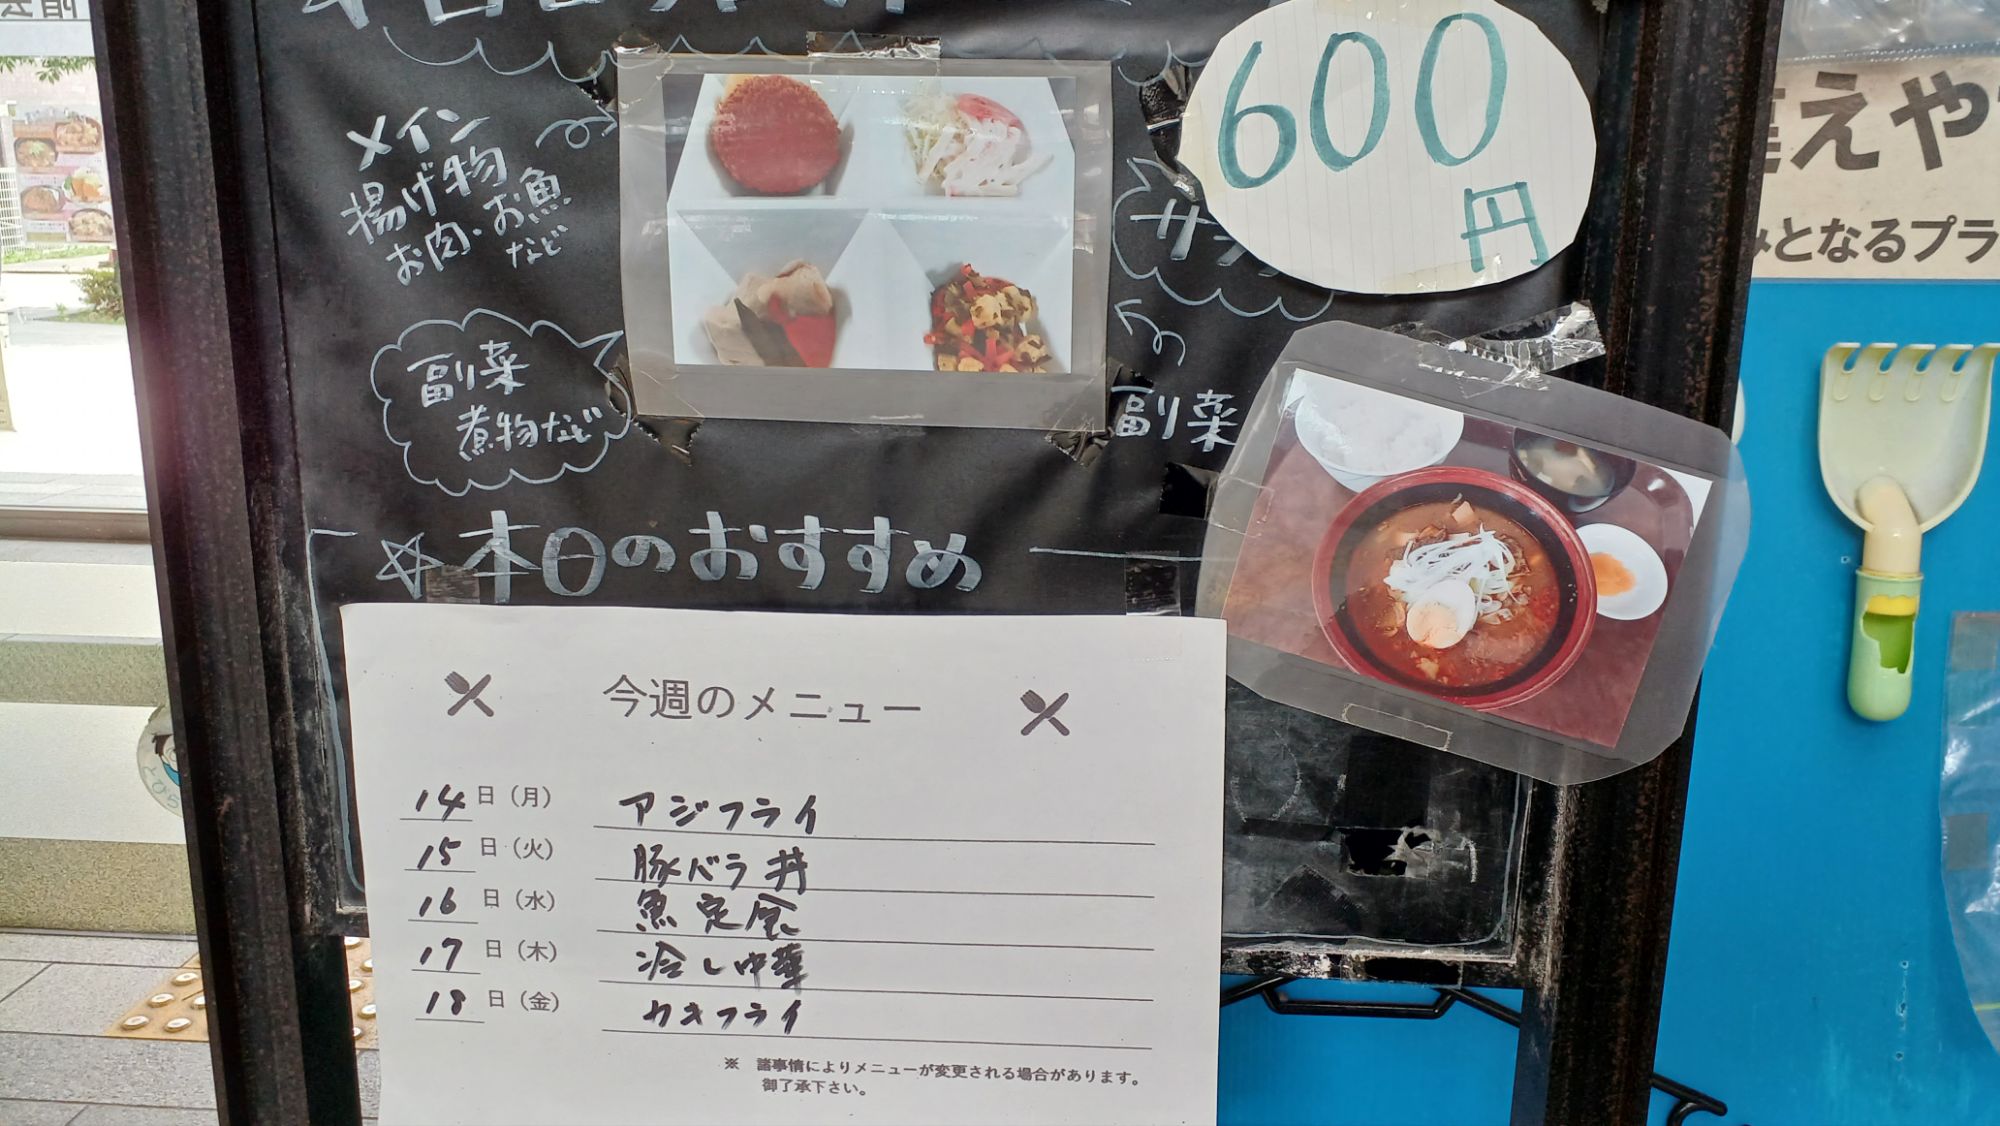 600
円
メイン
揚げ物
お肉・お魚
など
サラ
副菜
煮物など
副菜
☆本日のおすすめ
今週のメニュー
14日（月） アジフライ
15日（火） 豚バラ丼
16日（水） 魚定食
17日（木） 冷し中華
18日（金） カキフライ
※ 諸事情によりメニューが変更される場合があります。
御了承下さい。
えや
みとなるプラ